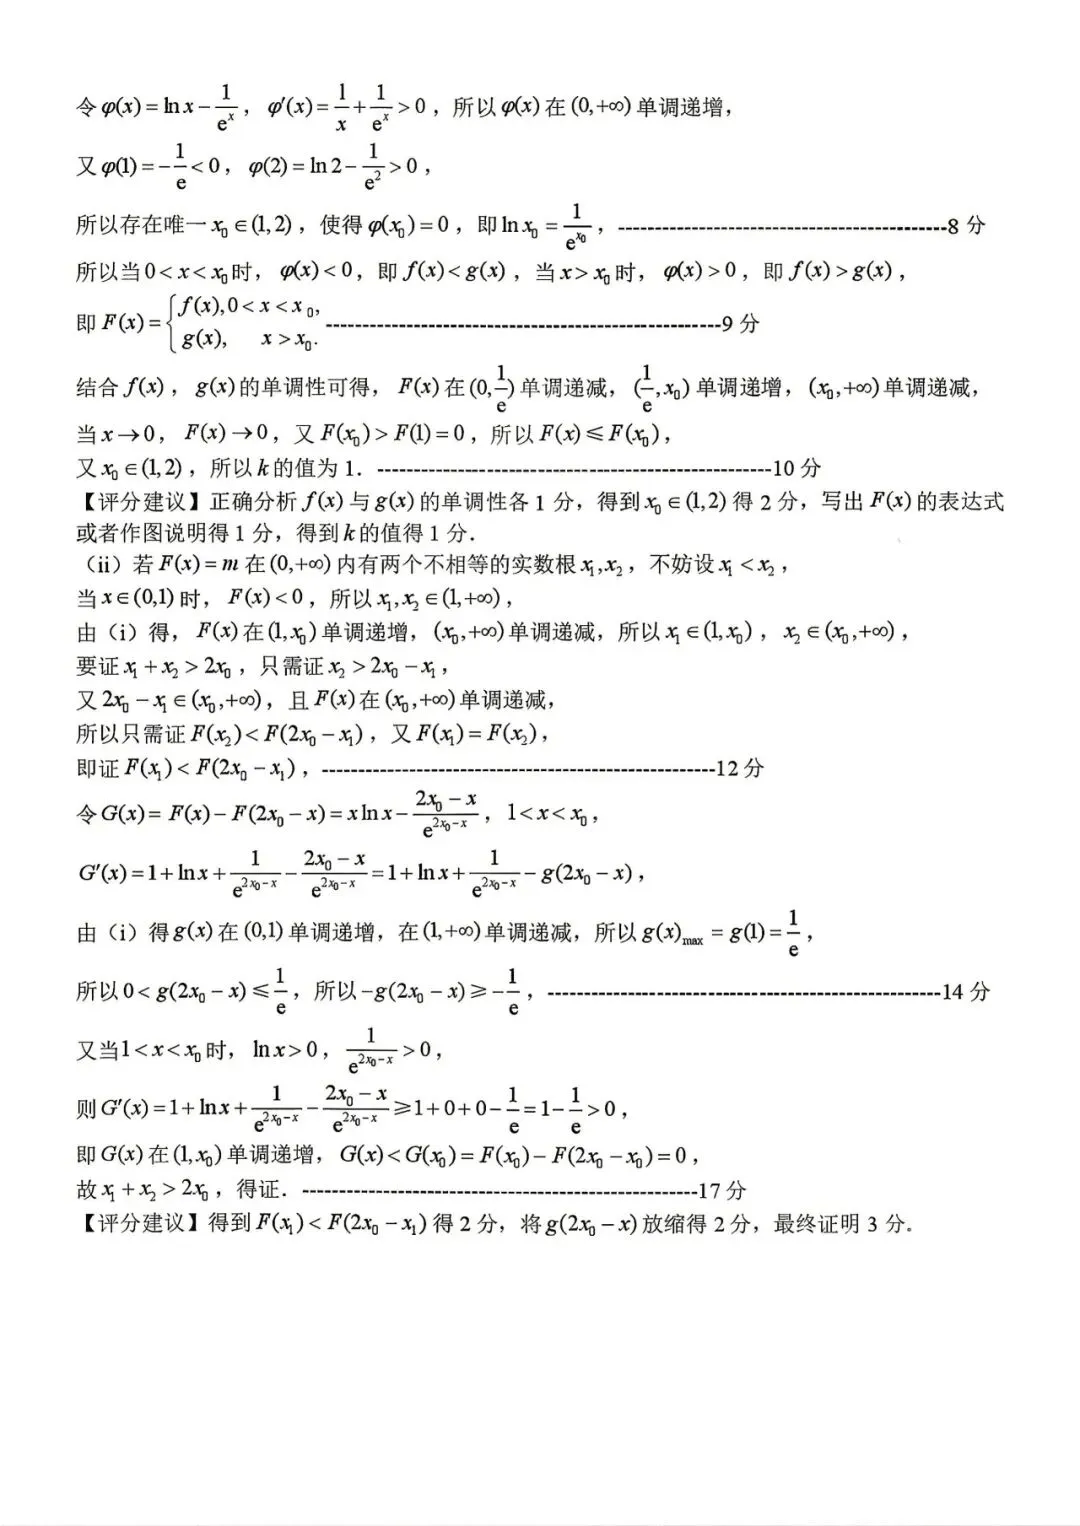 令φ(x)=ln x-1/e^x，φ′(x)=1/x+1/e^x>0，所以φ(x)在(0,+∞)单调递增，
又φ(1)=-1/e<0，φ(2)=ln 2-1/e^2>0，
所以存在唯一x₀∈(1,2)，使得φ(x₀)=0，即ln x₀=1/e^{x₀}，----------8分
所以当0<x<x₀时，φ(x)<0，即f(x)<g(x)，当x>x₀时，φ(x)>0，即f(x)>g(x)，
即F(x)={f(x),0<x<x₀, g(x), x>x₀.----------9分
结合f(x)，g(x)的单调性可得，F(x)在(0,1/e)单调递减，(1/e,x₀)单调递增，(x₀,+∞)单调递减，
当x→0，F(x)→0，又F(x₀)>F(1)=0，所以F(x)≤F(x₀)，
又x₀∈(1,2)，所以k的值为1．----------10分
【评分建议】正确分析f(x)与g(x)的单调性各1分，得到x₀∈(1,2)得2分，写出F(x)的表达式
或者作图说明得1分，得到k的值得1分．
（ii）若F(x)=m在(0,+∞)内有两个不相等的实数根x₁,x₂，不妨设x₁<x₂，
当x∈(0,1)时，F(x)<0，所以x₁,x₂∈(1,+∞)，
由（i）得，F(x)在(1,x₀)单调递增，(x₀,+∞)单调递减，所以x₁∈(1,x₀)，x₂∈(x₀,+∞)，
要证x₁+x₂>2x₀，只需证x₂>2x₀-x₁，
又2x₀-x₁∈(x₀,+∞)，且F(x)在(x₀,+∞)单调递减，
所以只需证F(x₂)<F(2x₀-x₁)，又F(x₁)=F(x₂)，
即证F(x₁)<F(2x₀-x₁)，----------12分
令G(x)=F(x)-F(2x₀-x)=xln x-(2x₀-x)/e^{2x₀-x}，1<x<x₀，
G′(x)=1+ln x+1/e^{2x₀-x}-(2x₀-x)/e^{2x₀-x}=1+ln x+1/e^{2x₀-x}-g(2x₀-x)，
由（i）得g(x)在(0,1)单调递增，在(1,+∞)单调递减，所以g(x)max=g(1)=1/e，
所以0<g(2x₀-x)≤1/e，所以-g(2x₀-x)≥-1/e，----------14分
又当1<x<x₀时，ln x>0，1/e^{2x₀-x}>0，
则G′(x)=1+ln x+1/e^{2x₀-x}-(2x₀-x)/e^{2x₀-x}≥1+0+0-1/e=1-1/e>0，
即G(x)在(1,x₀)单调递增，G(x)<G(x₀)=F(x₀)-F(2x₀-x₀)=0，
故x₁+x₂>2x₀，得证．----------17分
【评分建议】得到F(x₁)<F(2x₀-x₁)得2分，将g(2x₀-x)放缩得2分，最终证明3分。